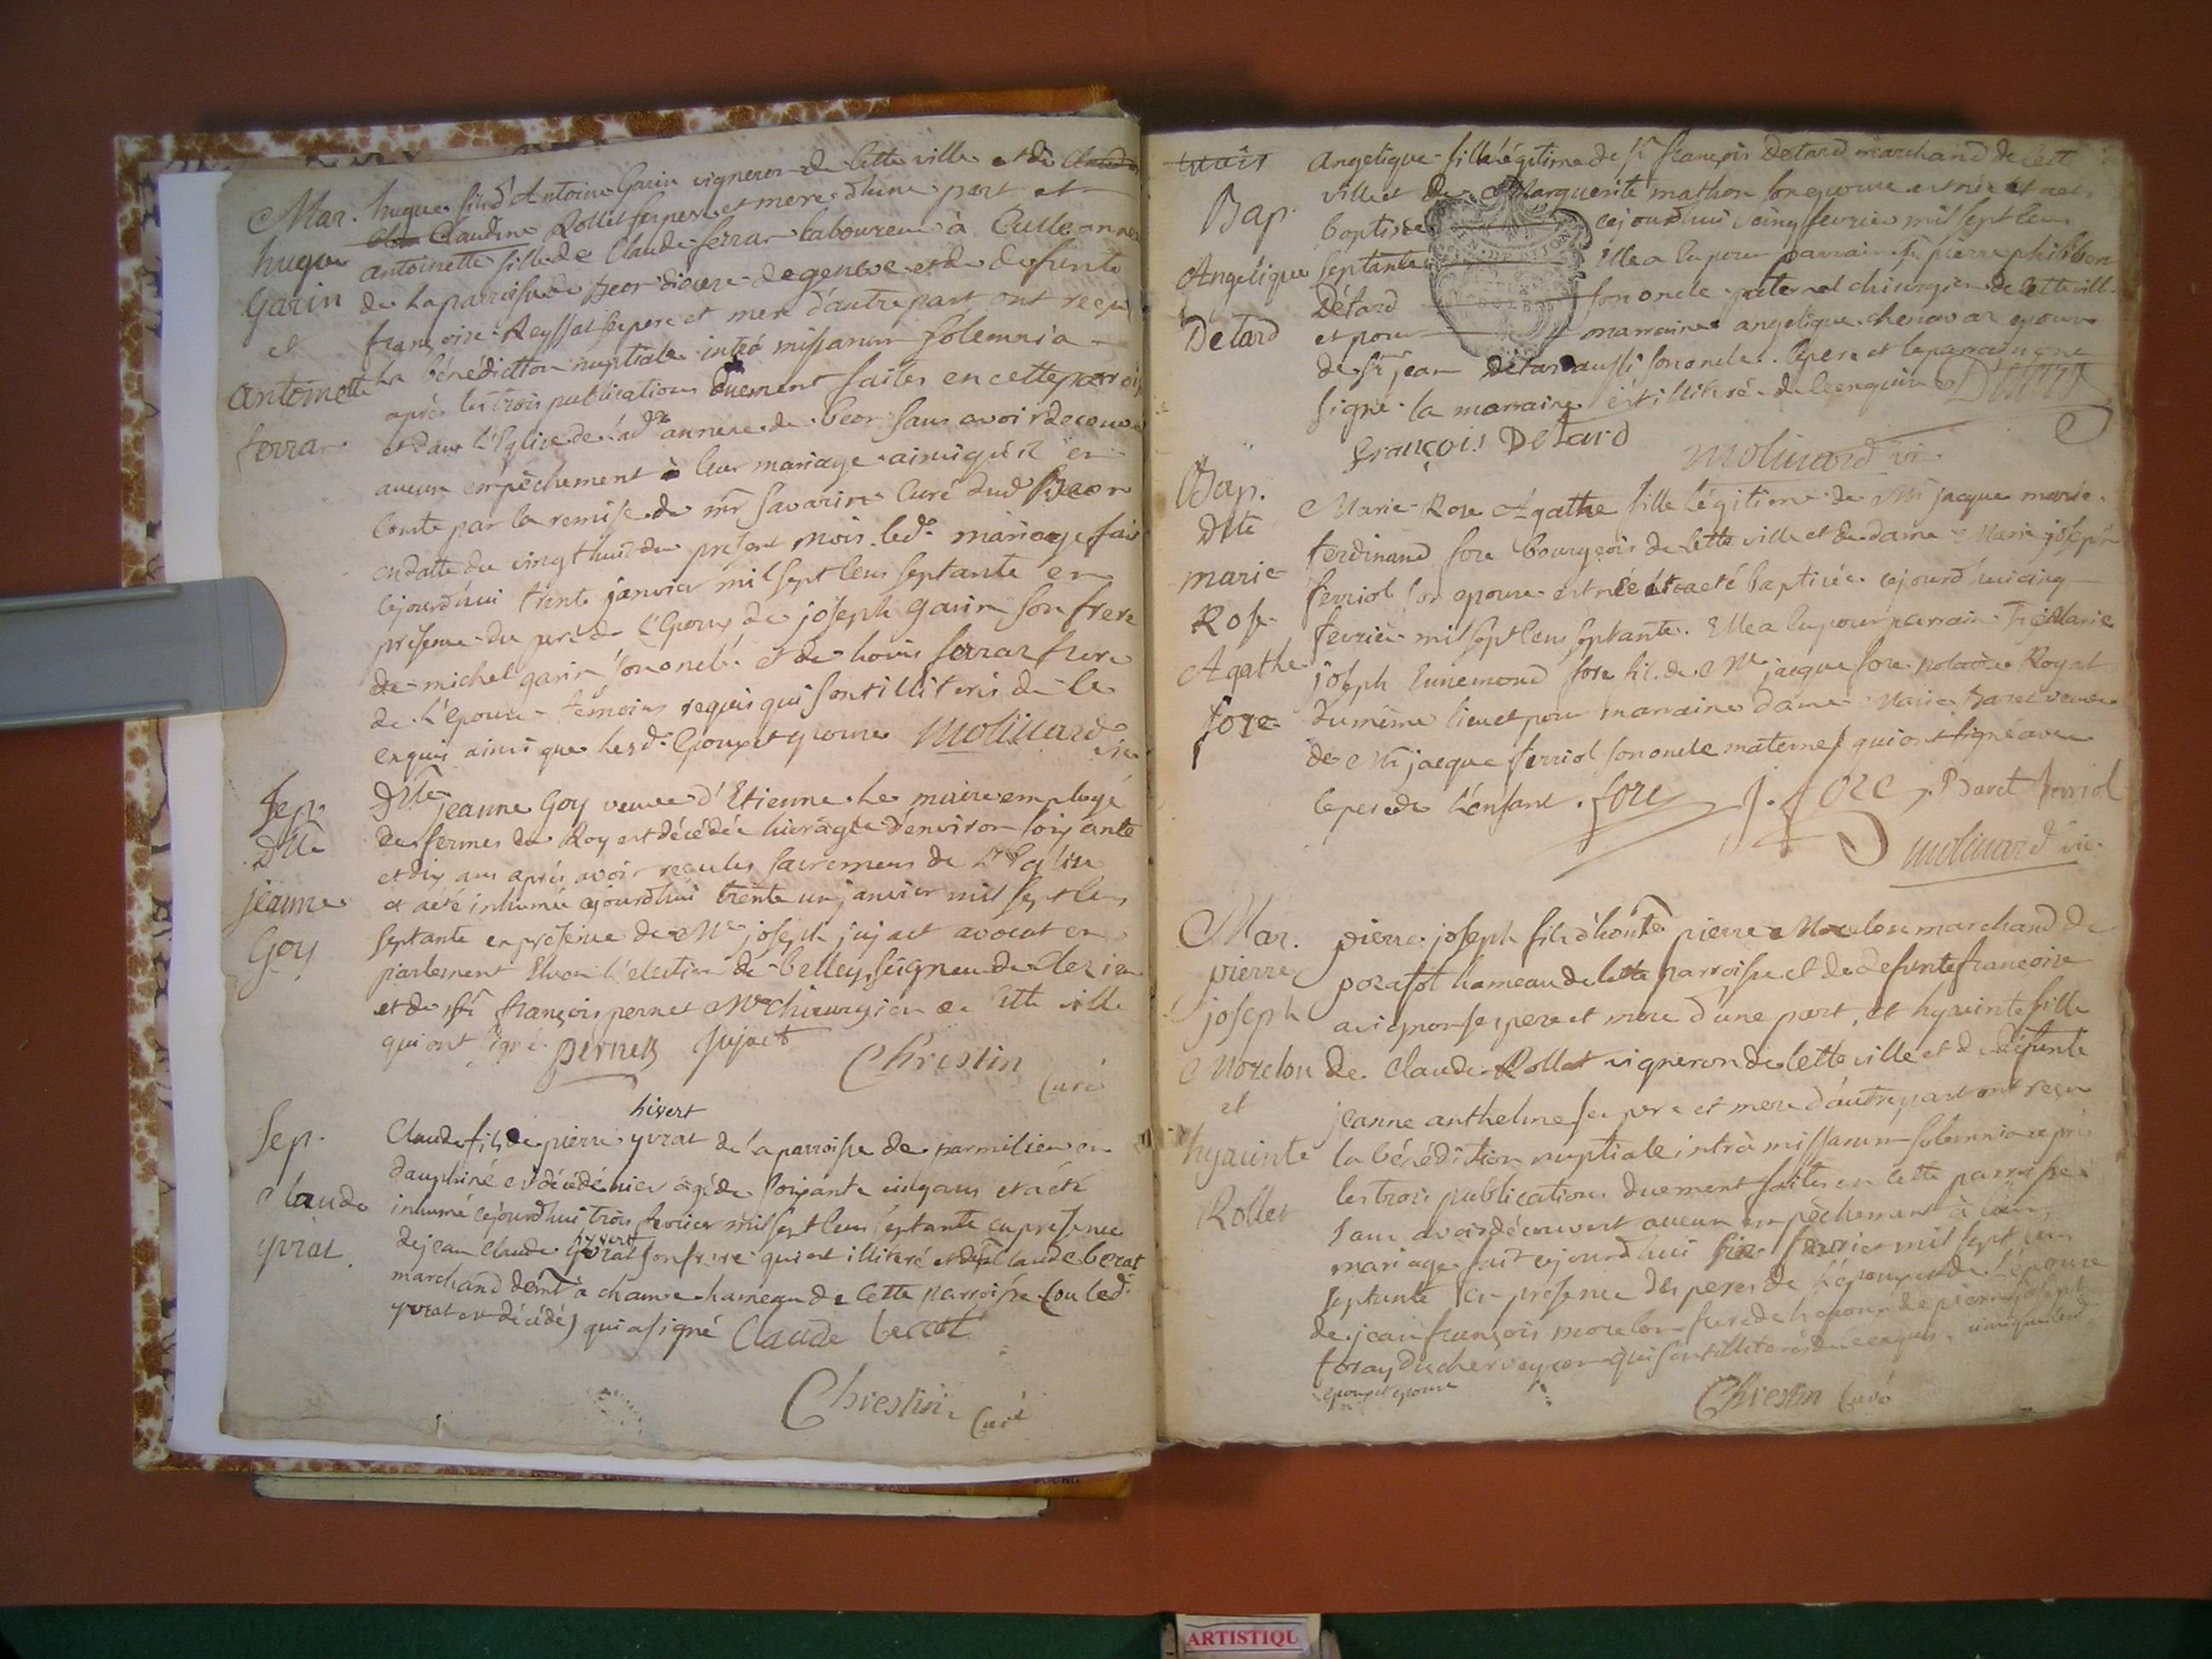 Mar.
hugue
Garin
et
antoinette
ferrar
hugue fils d'Antoine Garin vigneron de cette ville et de Claudine
Claudine Rollet ses pere et mere d'une part et
antoinette fille de Claude ferrar laboureur à Culle annexe
de la parroisse de Beon diocese de geneve et de defunte
françoise Reyssat ses pere et mere d'autre part ont reçu
la bénédiction nuptiale intrà missarum solemnia
après les trois publications duement faites en cette paroisse
et dans l'Eglise de lad. annexe de beon sans avoir decouvert
aucun empêchement à leur mariage ainsi qu'il en
conste par la remise de mr Savarin Curé dud Beon
en datte du vingt huit du present mois led. mariage fait
cejourd'hui trente janvier mil sept cens septante en
presence du pere de l'Epoux de joseph garin son frere
de michel garin son oncle et de louis ferrar frere
de l'épouse temoins requis qui sont illiterés de ce
enquis ainsi que lesd. Epoux et epouse Molinard
vic
Sep.
Dlle
jeanne
Goy
Dlle jeanne Goy veuve d'Etienne Le maire employé
des fermes du Roy est décédée hier agée d'environ soixante
et dix ans après avoir reçu les sacremens de l'Eglise
et a été inhumée cejourd'hui trente un janvier mil sept cens
septante en présence de Me joseph jujact avocat en
parlement Elu en l'election de belley, seigneur de
et de sr françois pernet Me chirurgien de cette ville
qui ont signé Pernet Jujact
Christin
Curé
Sep.
Claude
yvrat
hivert
Claude fils de pierre yvrat de la parroisse de parmilieu en
dauphiné est décédé hier agé de soixante cinq ans et a été
inhumé cejourd'hui trois fevrier mil sept cens septante en presence
hyvert
de jean Claude yvrat son frere qui est illiteré et de sr Claude berat
marchand demt à hameau de cette parroisse (ou led.
yvrat est décédé) qui a signé Claude berat
Christin
Curé
Bap.
Angelique
Détard
Angelique fille légitime de sr françois Détard marchand de cette
ville et de Marguerite mathon son epouse est née et a été
baptisée cejourdhui cinq fevrier mil sept cens
septante Elle a eu pour parrain sr pierre philibert
Détard son oncle paternel chirurgien de cette ville
et pour marraine angelique chenavar epouse
de sr jean détard aussi son oncle. le pere et le parrain ont
signé la marraine est illiteré de ce enquise Détard
françois Detard
Molinard vic.
Bap.
Dlle
marie
Rose
Agathe
fore
Marie Rose Agathe fille légitime de Mr jacque marie
ferdinand fore bourgeois de cette ville et de dame Marie joseph
ferriol son epouse est née et a été baptisée cejourd'hui cinq
fevrier mil sept cens septante. Elle a eu pour parrain Marie
joseph Ennemond fore fil. de Me jacque fore notaire Royal
du même lieu et pour marraine dame Marie baret veuve
de Mr jacque ferriol son oncle maternel qui ont signé avec
le pere de l'enfant. fore J. fore Baret ferriol
Molinard vic.
Mar.
pierre
joseph
Morelon
et
hyacinte
Rollet
pierre joseph fils d'honte pierre Morelon marchand de
hameau de cette parroisse et de defunte françoise
avignon ses pere et mere d'une part, et hyacinte fille
de Claude Rollet vigneron de cette ville et de défunte
jeanne anthelme ses pere et mere d'autre part ont reçu
la bénédiction nuptiale intrà missarum solemnia après
les trois publications duement faites en cette parroisse
sans avoir découvert aucun empêchement à leur
mariage fait cejourd'hui six fevrier mil sept cens
septante en présence des peres de l'époux et de l'épouse
de jean françois morelon frere de l'époux de pierre joseph
qui sont illiterés de ce enquis. ainsi que lesd.
epoux et epouse
Christin Curé
ARTISTIQU